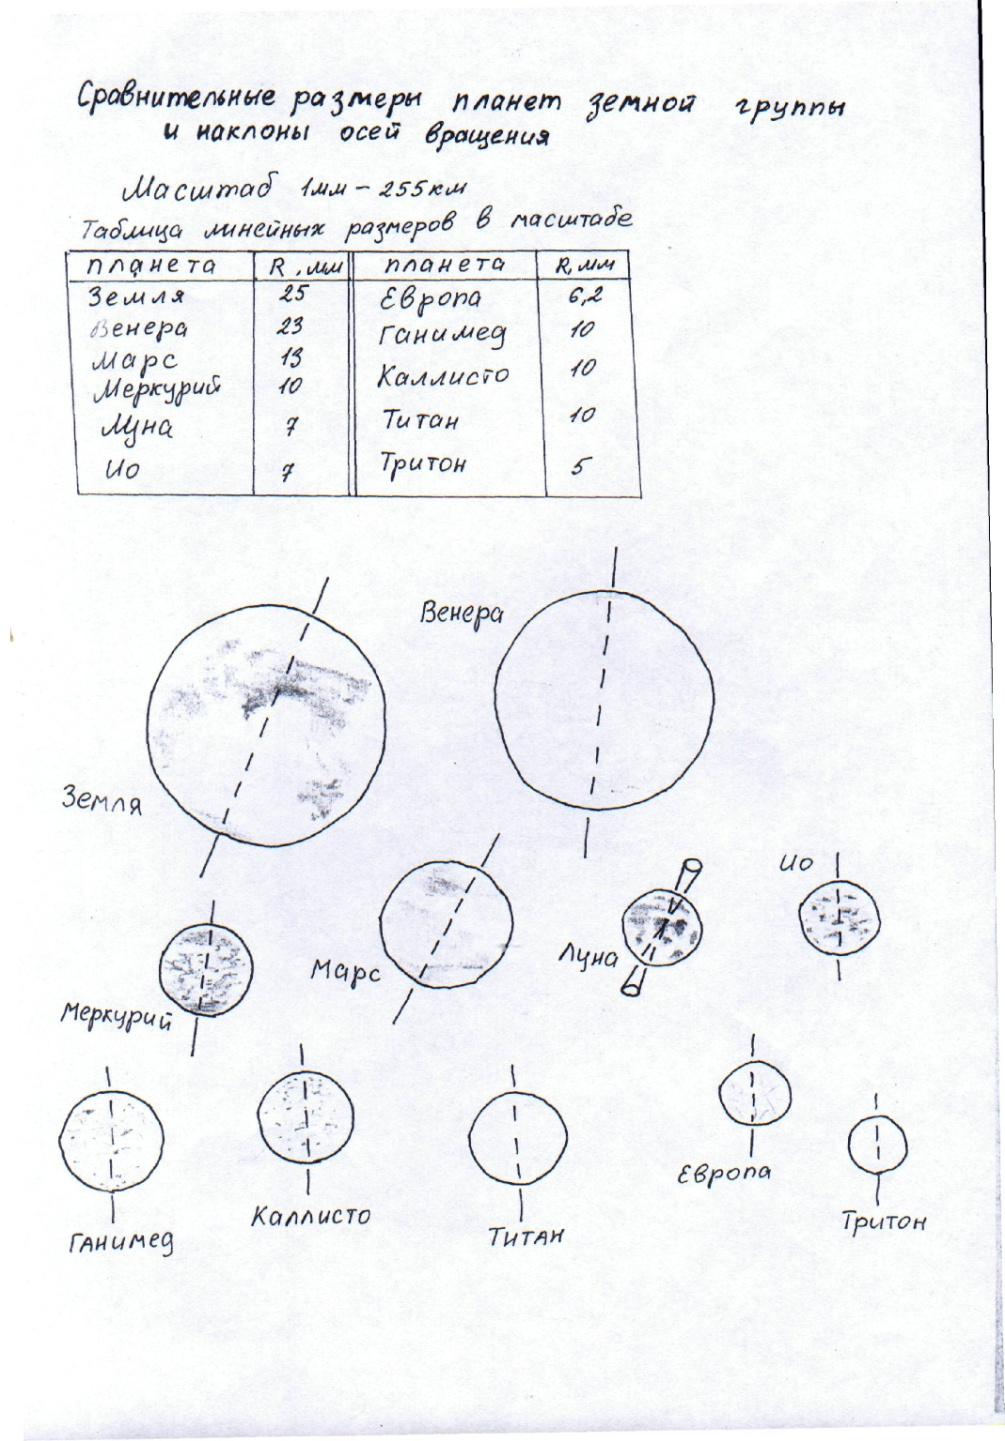 Сравнительные размеры планет земной группы
и наклоны осей вращения
Масштаб 1мм – 255км
Таблица линейных размеров в масштабе
планета R, мм планета R, мм
Земля 25 Европа 6,2
Венера 23 Ганимед 10
Марс 13 Каллисто 10
Меркурий 10 Титан 10
Луна 7 Тритон 5
Ио 7
Венера
Земля
Ио
Луна
Марс
Меркурий
Европа
Каллисто
Тритон
Титан
Ганимед